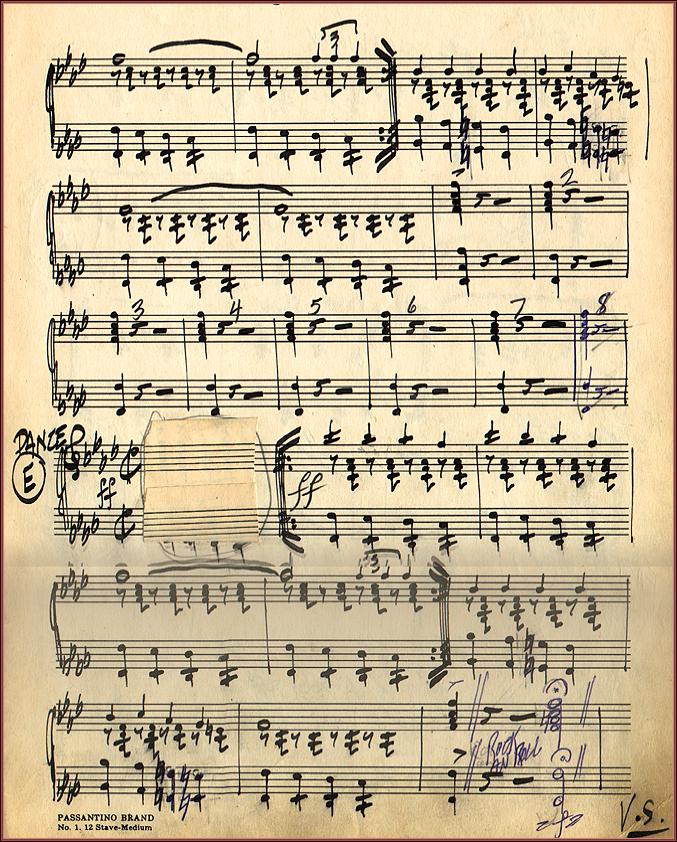 3
2
3 4 5 6 7 8
DANCE
E
ff ff
3
PASSANTINO BRAND
No. 1. 12 Stave-Medium
V.S.